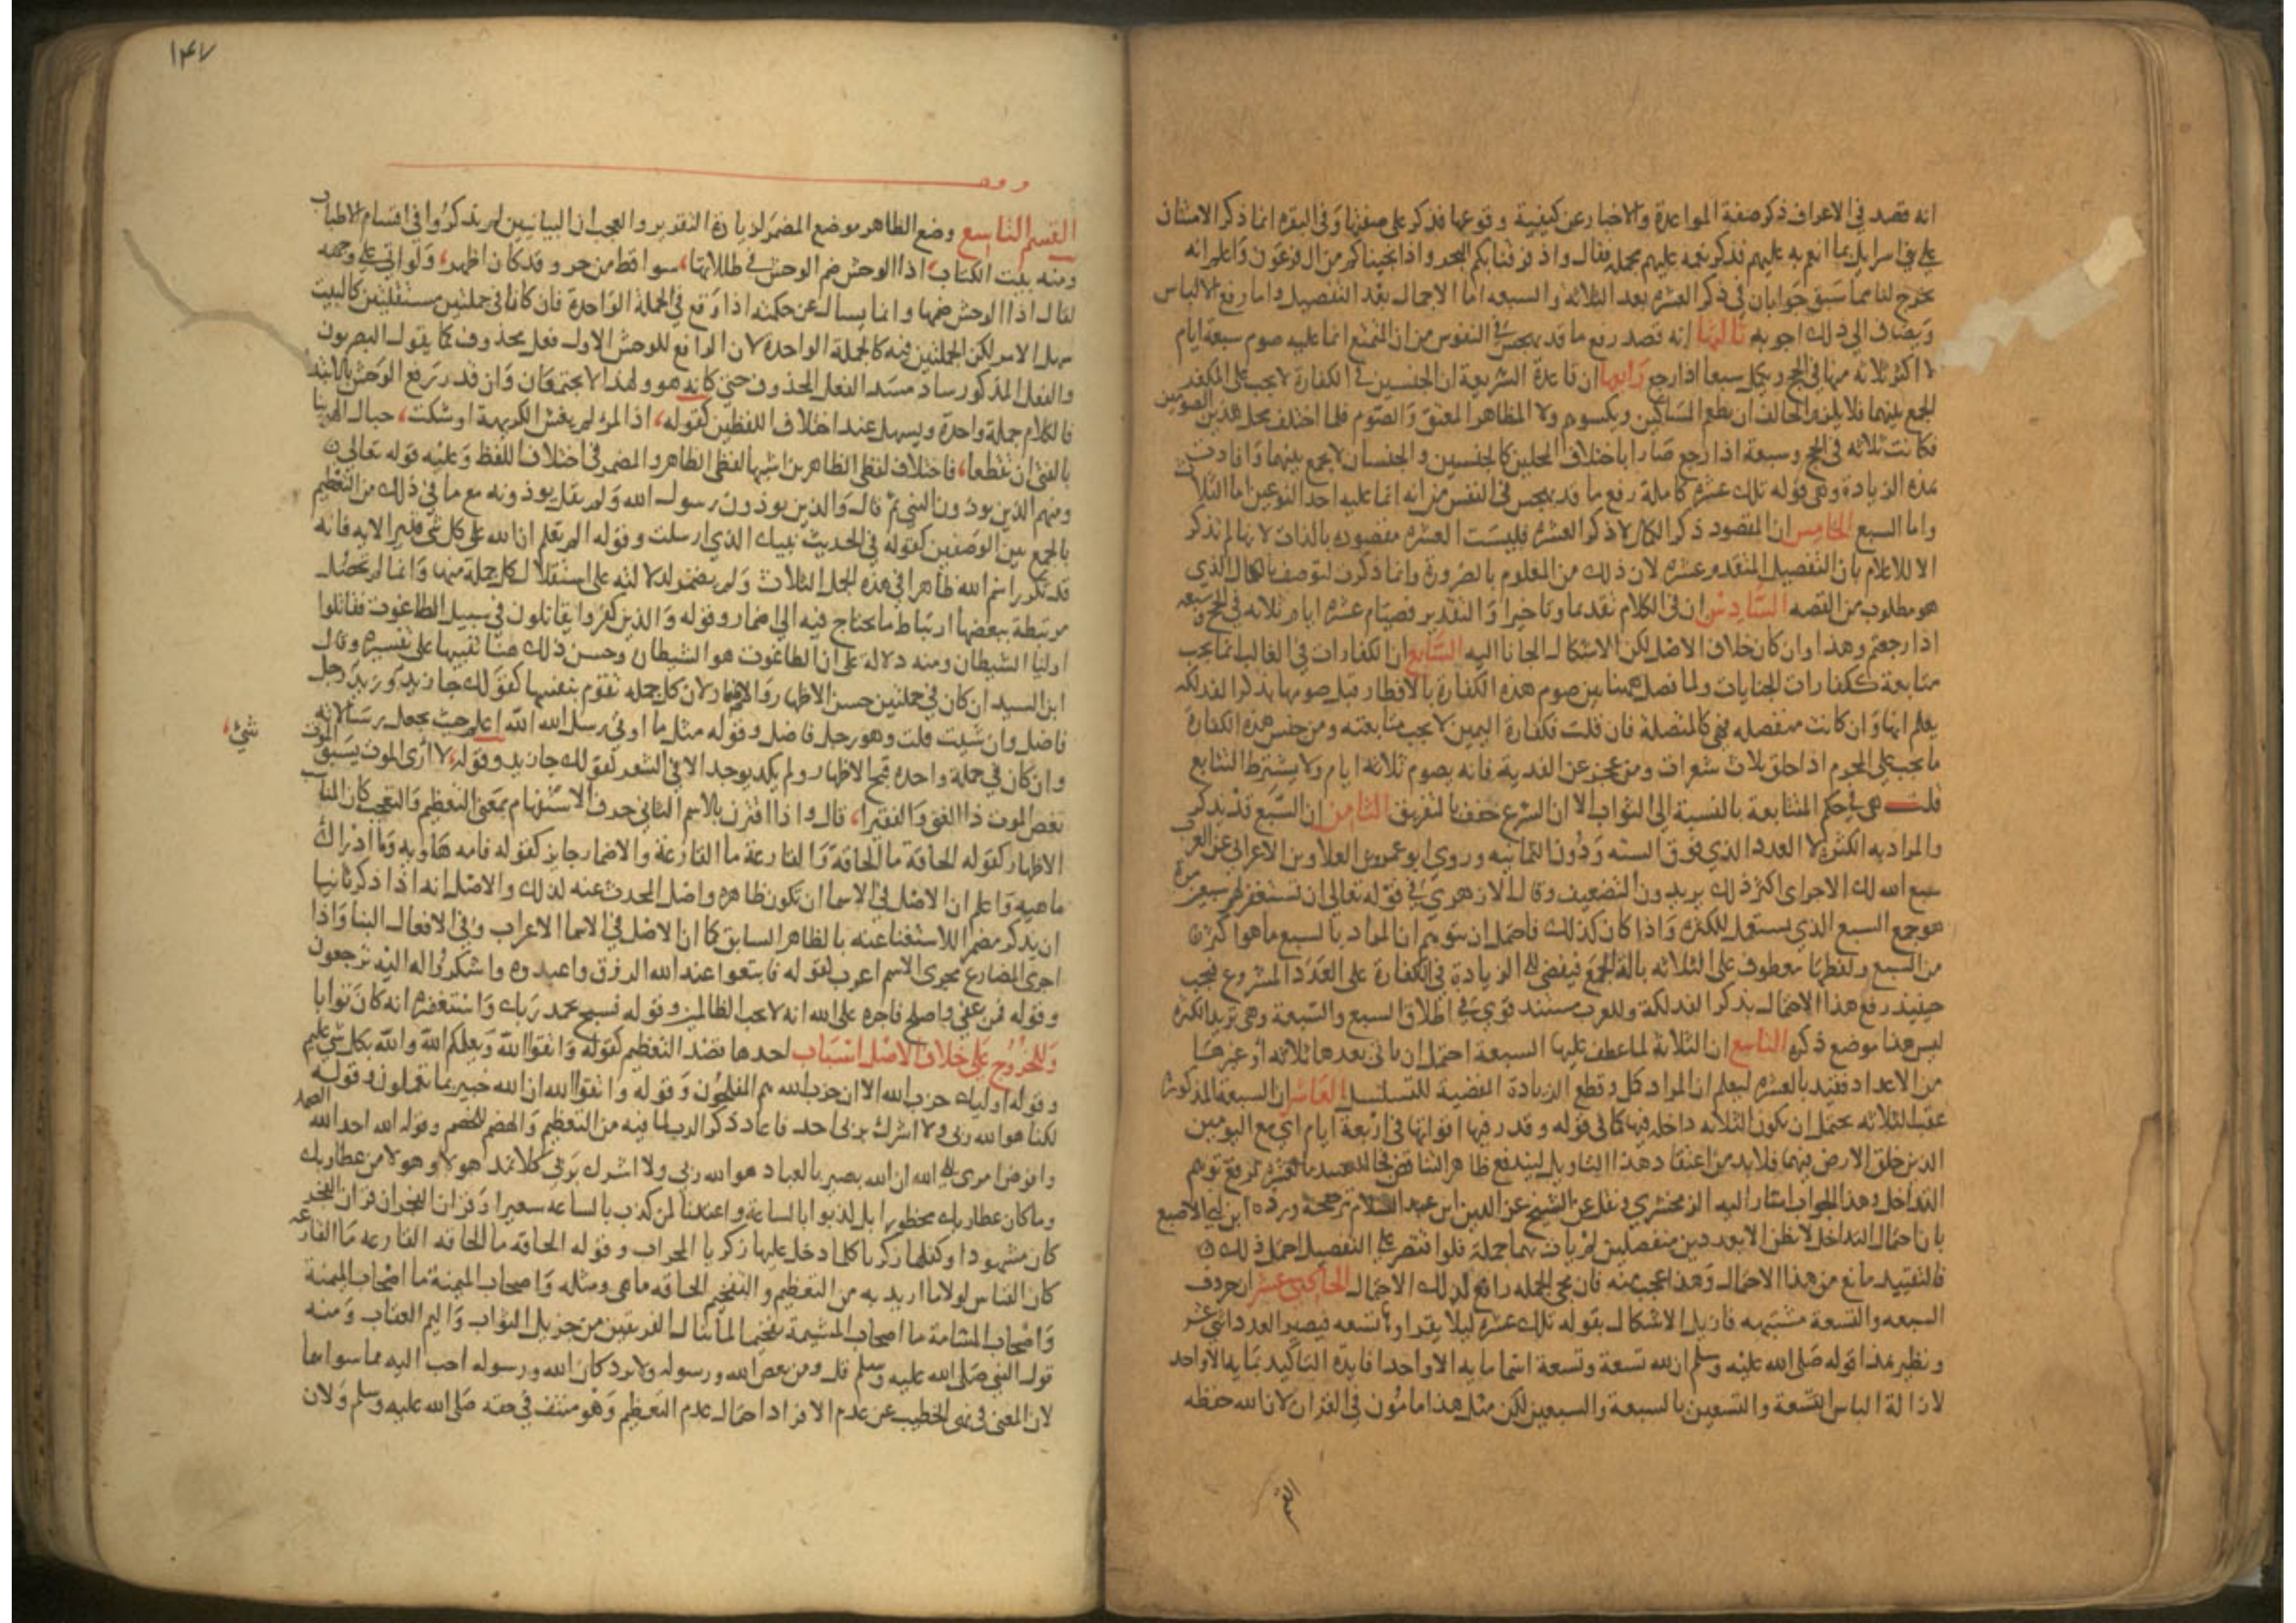 انه قصد في الاعراف ذكر صفة المواعدة والاخبار عن كيفية وقوعها فذكر على صفتها وفي البقرة انما ذكر الامتنان
على بني اسرايل بما انعم به عليهم فذكر نعمه عليهم مجملة فقال واذ فرقنا بكم البحر واذ انجيناكم من ال فرعون واعلم انه
يخرج لنا مما سبق جوابان في ذكر العشرة بعد الثلاثة والسبعه اما الاجمال بعد التفصيل واما رفع الالباس
ويضاف الى ذلك اجوبه ثالثها انه قصد رفع ما قد يهجس في النفوس من ان المتمتع انما عليه صوم سبعة ايام
لا اكثر ثلاثه منها في الحج ويكمل سبعا اذا رجع رابعها ان قاعدة الشريعة ان الجنسين في الكفارة لا يجب على المكفر
الجمع بينهما فلا يلزم الحالف ان يطعم المساكين ويكسوهم ولا المظاهر العتق والصوم فلما اختلف محل هذين الصومين
فكانت ثلاثه في الحج وسبعة اذا رجع صارا باختلاف المحلين كالجنسين والجنسان لا يجمع بينهما وافادت
هذه الزيادة وهي قوله تلك عشرة كاملة رفع ما قد يهجس في النفس من انه انما عليه احد النوعين اما الثلاث
واما السبع الخامس ان المقصود ذكر الكمال لا ذكر العشرة فليست العشرة مقصوده بالذات لانها لم تذكر
الا للاعلام بان التفصيل المتقدم عشرة لان ذلك من المعلوم بالضرورة وانما ذكرت لتوصف بالكمال الذي
هو مطلوب من القصه السادس ان في الكلام تقديما وتاخيرا والتقدير فصيام عشرة ايام ثلاثه في الحج وسبعه
اذا رجعتم وهذا وان كان خلاف الاصل لكن الاشكال الجانا اليه السابع ان الكفارات في الغالب انما يجب
متتابعة ككفارات الجنايات ولما فصل ههنا بين صوم هذه الكفارة بالافطار قبل صومها بذكر الفدلكه
يعلم انها وان كانت منفصله فهي كالمتصلة فان قلت فكفارة اليمين لا يجب متابعته ومن جنس هذه الكفارة
ما يجب على المحرم اذا حلق ثلاث شعرات ومن عجز عن الفدية فانه يصوم ثلاثة ايام ولا يشترط التتابع
قلت هي في حكم المتتابعة بالنسبة الى الثواب الا ان الشرع خفف بالتفريق الثامن ان السبع قد يذكر
والمراد به الكثرة لا العدد الذي فوق السته ودون الثمانيه وروي ابو عمرو بن العلا وبن الاعرابي عن العرب
سبع الله لك الاجراي اكثر ذلك يريدون التضعيف وقال الازهري في قوله تعالى ان تستغفر لهم سبعين مرة
هو جمع السبع الذي يستعمل للكثرة واذا كان كذلك فاحتمل ان يتوهم ان المراد بالسبع ما هو اكثر
من السبع ولفظها معطوف على الثلاثه بالة الجمع فيفضي الى الزيادة في الكفارة على العدد المشروع فيجب
حينيذ رفع هذا الاحتمال بذكر الفدلكة وللعرب مستند قوي في اطلاق السبع والسبعة وهي تريد الكثرة
ليس هذا موضع ذكره التاسع ان الثلاثة لما عطف عليها السبعة احتمل ان ياتي بعدها ثلاثه او غيرها
من الاعداد فقيد بالعشرة ليعلم ان المراد كمل وقطع الزيادة المفضية للتسلسل العاشر ان السبعة المذكورة
عقب الثلاثه يحتمل ان يكون الثلاثه داخله فيها كما في قوله وقدر فيها اقواتها في اربعة ايام اي مع اليومين
الذين خلق الارض فيهما فلا بد من اعتقاد هذا التاويل ليندفع ظاهر التناقض فجا التقييد بالعشرة لرفع توهم
التداخل وهذا الجواب اشار اليه الزمخشري ونقل عن الشيخ عز الدين ابن عبد السلام ترجيحه ورده ابن ابي الاصبع
بان احتمال التداخل لا يظن الا بعددين منفصلين لم يات بهما جملة فلو اقتصر على التفصيل احتمل ذلك
فالتقييد مانع من هذا الاحتمال وهذا عجيب منه فان مجي الجمله رافع لذلك الاحتمال الحادي عشر ان حروف
السبعه والتسعة مشتبهه فازيل الاشكال بقوله تلك عشرة ليلا يقراوا تسعه فيصير العدد اثني عشر
ونظير هذا قوله صلى الله عليه وسلم ان لله تسعة وتسعة اسما مايه الا واحدا فايدة التاكيد بمايه الا واحد
لازالة الباس التسعة والتسعين بالسبعة والسبعين لكن مثل هذا مامون في القران لان الله حفظه
القسم
١٤٧
القسم التاسع وضع الظاهر موضع المضمر لزيادة التقدير والعجب ان البيانيين لم يذكروا في اقسام الاطناب
ومنه بيت الكتاب، اذا الوحش ضم الوحش في ظللاتها، سواقط من حر وقد كان اظهر، ولو اتى على وجهه
لقال اذا الوحش ضمها وانما يسال عن حكمته اذا وقع في الجملة الواحدة فان كانا في جملتين مستقلتين كالبيت
سهل الامر لكن الجملتين فيه كالجملة الواحدة لان الرافع للوحش الاول فعل محذوف كما يقول البصريون
والفعل المذكور ساد مسد الفعل المحذوف حتى كانه هو ولهذا لا يجتمعان وان قدر رفع الوحش بالابتدا
فالكلام جملة واحدة ويسهل عند اختلاف اللفظين كقوله، اذا المرء لم يغش الكريهة اوشكت، حبال الهوينا
بالفتى ان تقطعا، فاختلاف لفظي الظاهرين اشبها لفظي الظاهر والمضمر في اختلاف اللفظ وعليه قوله تعالى
ومنهم الذين يوذون النبي ثم قال والذين يوذون رسول الله ولم يقل يوذونه مع ما في ذلك من التعظيم
بالجمع بين الوصفين كقوله في الحديث نبيك الذي ارسلت وقوله الم تعلم ان الله على كل شي قدير الايه فانه
قد تكرر اسم الله ظاهرا في هذه الجمل الثلاث ولم يضمر لدلالته على استقلال كل جملة منها وانما لم تحصل
مرتبطة ببعضها ارتباط ما يحتاج فيه الى اضمار وقوله والذين كفروا يقاتلون في سبيل الطاغوت فقاتلوا
اوليا الشيطان ومنه دلالة على ان الطاغوت هو الشيطان وحسن ذلك هنا تنبيها على تفسيره وقال
ابن السيد ان كان في جملتين حسن الاظهار والاضمار لان كل جمله تقوم بنفسها كقولك جا زيد وزيد رجل
فاضل وان شيت قلت وهو رجل فاضل وقوله مثل ما اوتي رسل الله الله اعلم حيث يجعل رسالاته
وان كان في جملة واحدة قبح الاظهار ولم يكد يوجد الا في الشعر كقولك جا زيد وقوله، لا ارى الموت يسبق الموت شيء،
نغص الموت ذا الغنى والفقيرا، قال واذا اقترن بالاسم الثاني حرف الاستفهام بمعنى التعظيم والتعجب كان الباب
الاظهار كقوله الحاقة ما الحاقة والقارعة ما القارعة والاضمار جايز كقوله فامه هاويه وما ادراك
ماهيه واعلم ان الاصل في الاسما ان تكون ظاهرة واصل المحدث عنه لذلك والاصل انه اذا ذكر ثانيا
ان يذكر مضمرا للاستغناء عنه بالظاهر السابق كما ان الاصل في الاسما الاعراب وفي الافعال البنا واذا
اجرى المضارع مجرى الاسم اعرب كقوله فابتغوا عند الله الرزق واعبدوه واشكروا له اليه ترجعون
وقوله فمن عفى واصلح فاجره على الله انه لا يحب الظالمين وقوله فسبح بحمد ربك واستغفره انه كان توابا
وللخروج على خلاف الاصل اسباب احدها قصد التعظيم كقوله واتقوا الله ويعلمكم الله والله بكل شي عليم
وقوله اوليك حزب الله الا ان حزب الله هم المفلحون وقوله واتقوا الله ان الله خبير بما تعملون وقوله
لكنا هو الله ربي ولا اشرك بربي احد فاعاد ذكر الرب لما فيه من التعظيم والهضم للخصم وقوله الله احد الله الصمد
وافوض امري الى الله ان الله بصير بالعباد هو الله ربي ولا اشرك بربي كلا نمد هولا وهولا من عطا ربك
وما كان عطا ربك محظورا بل كذبوا بالساعة واعتدنا لمن كذب بالساعه سعيرا وقران الفجر ان قران الفجر
كان مشهودا وكفلها زكريا كلما دخل عليها زكريا المحراب وقوله الحاقة ما الحاقه القارعه ما القارعه
كان القياس لولا ما اريد به من التعظيم والتفخيم الحاقه ماهي ومثله واصحاب الميمنة ما اصحاب الميمنة
واصحاب المشامة ما اصحاب المشيمة تفخيما لما ينال الفريقين من جزيل الثواب واليم العقاب ومنه
قول النبي صلى الله عليه وسلم قل ومن يعص الله ورسوله ولا يرد كان الله ورسوله احب اليه مما سواهما
لان المعنى في نهي الخطيب عن عدم الافراد احتمال عدم التعظيم وهو منتف في حقه صلى الله عليه وسلم ولان